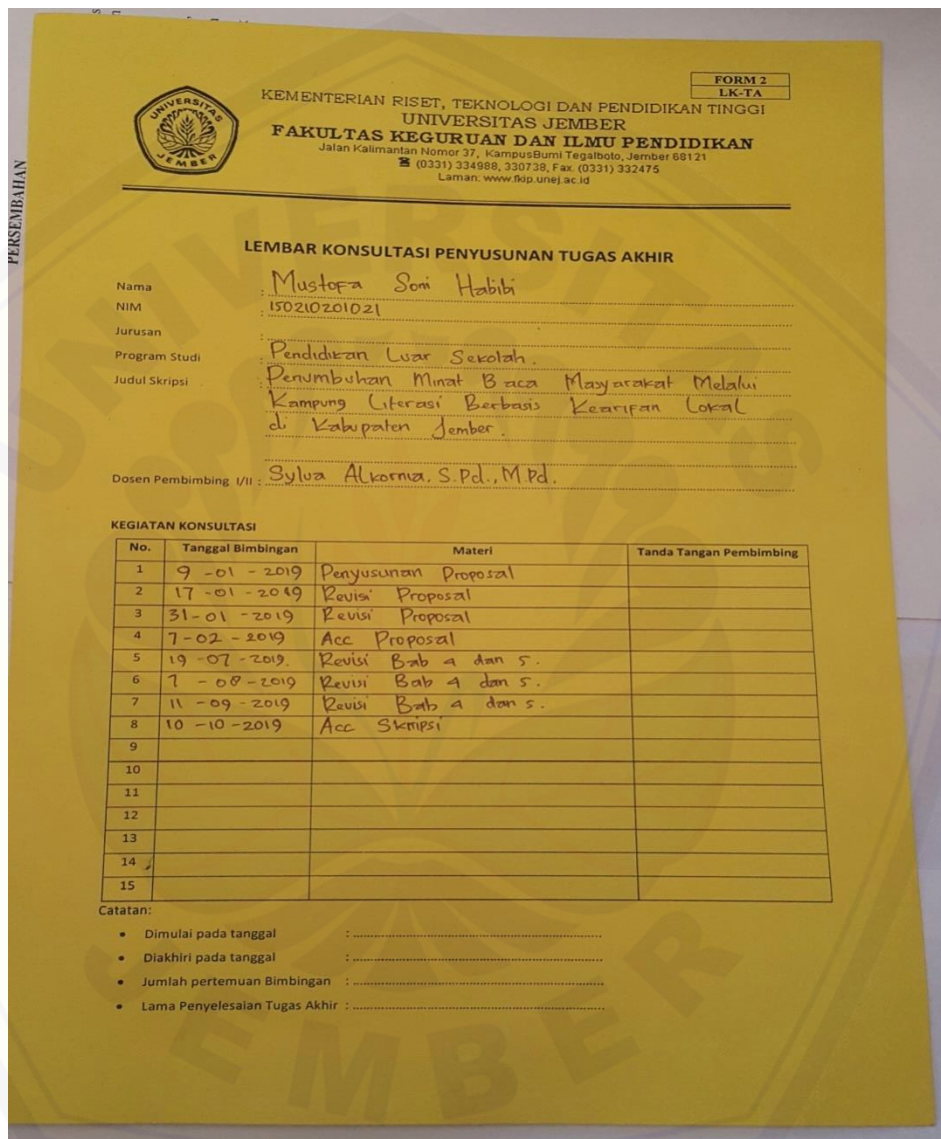 PERSEMBAHAN
FORM 2
LK-TA
UNIVERSITAS
JEMBER
KEMENTERIAN RISET, TEKNOLOGI DAN PENDIDIKAN TINGGI
UNIVERSITAS JEMBER
FAKULTAS KEGURUAN DAN ILMU PENDIDIKAN
Jalan Kalimantan Nomor 37, KampusBumi Tegalboto, Jember 68121
☎ (0331) 334988, 330738, Fax. (0331) 332475
Laman: www.fkip.unej.ac.id
LEMBAR KONSULTASI PENYUSUNAN TUGAS AKHIR
Nama : Mustofa Soni Habibi
NIM : 150210201021
Jurusan :
Program Studi : Pendidikan Luar Sekolah.
Judul Skripsi : Penumbuhan Minat Baca Masyarakat Melalui
Kampung Literasi Berbasis Kearifan Lokal
di Kabupaten Jember.
Dosen Pembimbing I/II : Sylva Alkornia, S.Pd., M.Pd.
KEGIATAN KONSULTASI
No. Tanggal Bimbingan Materi Tanda Tangan Pembimbing
1 9-01-2019 Penyusunan Proposal
2 17-01-2019 Revisi Proposal
3 31-01-2019 Revisi Proposal
4 7-02-2019 Acc Proposal
5 19-07-2019. Revisi Bab 4 dan 5.
6 7-08-2019 Revisi Bab 4 dan 5.
7 11-09-2019 Revisi Bab 4 dan 5.
8 10-10-2019 Acc Skripsi
9
10
11
12
13
14
15
Catatan:
• Dimulai pada tanggal :
• Diakhiri pada tanggal :
• Jumlah pertemuan Bimbingan :
• Lama Penyelesaian Tugas Akhir :
UNIVERSITAS
JEMBER